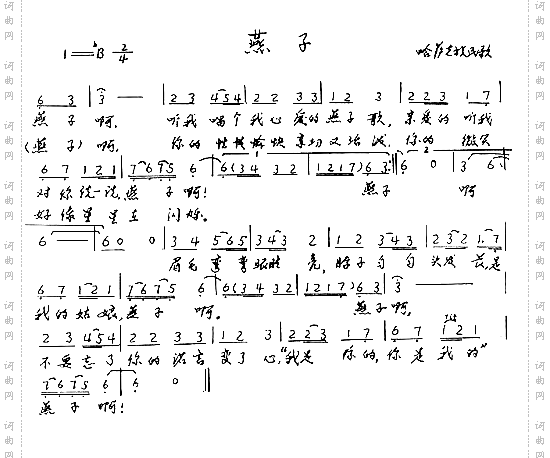 燕子
1=♭B 2/4
哈萨克族民歌
6 3 | 3 — — | 2 3 4 5 4 | 2 2 3 3 | 1 2 3 | 2 2 3 1 7 |
燕子啊, 听我唱个我心爱的燕子歌, 亲爱的听我
(燕子)啊, 你的性情愉快亲切又活泼, 你的微笑
6 7 1 2 1 | 7 6 7 5 6 | 6 (3 4 3 2 | 1 2 1 7) 6 3 | 6 0 | 3 6 |
对你说一说,燕子啊! 燕子 啊
好像星星在闪烁。
6 — — | 6 0 0 | 3 4 5 6 5 | 3 4 3 2 | 1 2 3 4 3 | 2 3 2 1 7 |
眉毛弯弯眼睛亮, 脖子匀匀头发长,是
6 7 1 2 1 | 7 6 7 5 6 | 6 (3 4 3 2 | 1 2 1 7) 6 3 | 3 — — |
我的姑娘,燕子啊。 燕子啊,
2 3 4 5 4 | 2 2 3 3 | 1 2 3 | 2 2 3 1 7 | 6 7 1 2 1 |
不要忘了你的诺言变了心,“我是你的,你是我的”
7 6 7 5 6 | 6 0 ||
燕子啊!
词曲网
词曲网
词曲网
词曲网
词曲网
词曲网
词曲网
词曲网
词曲网
词曲网